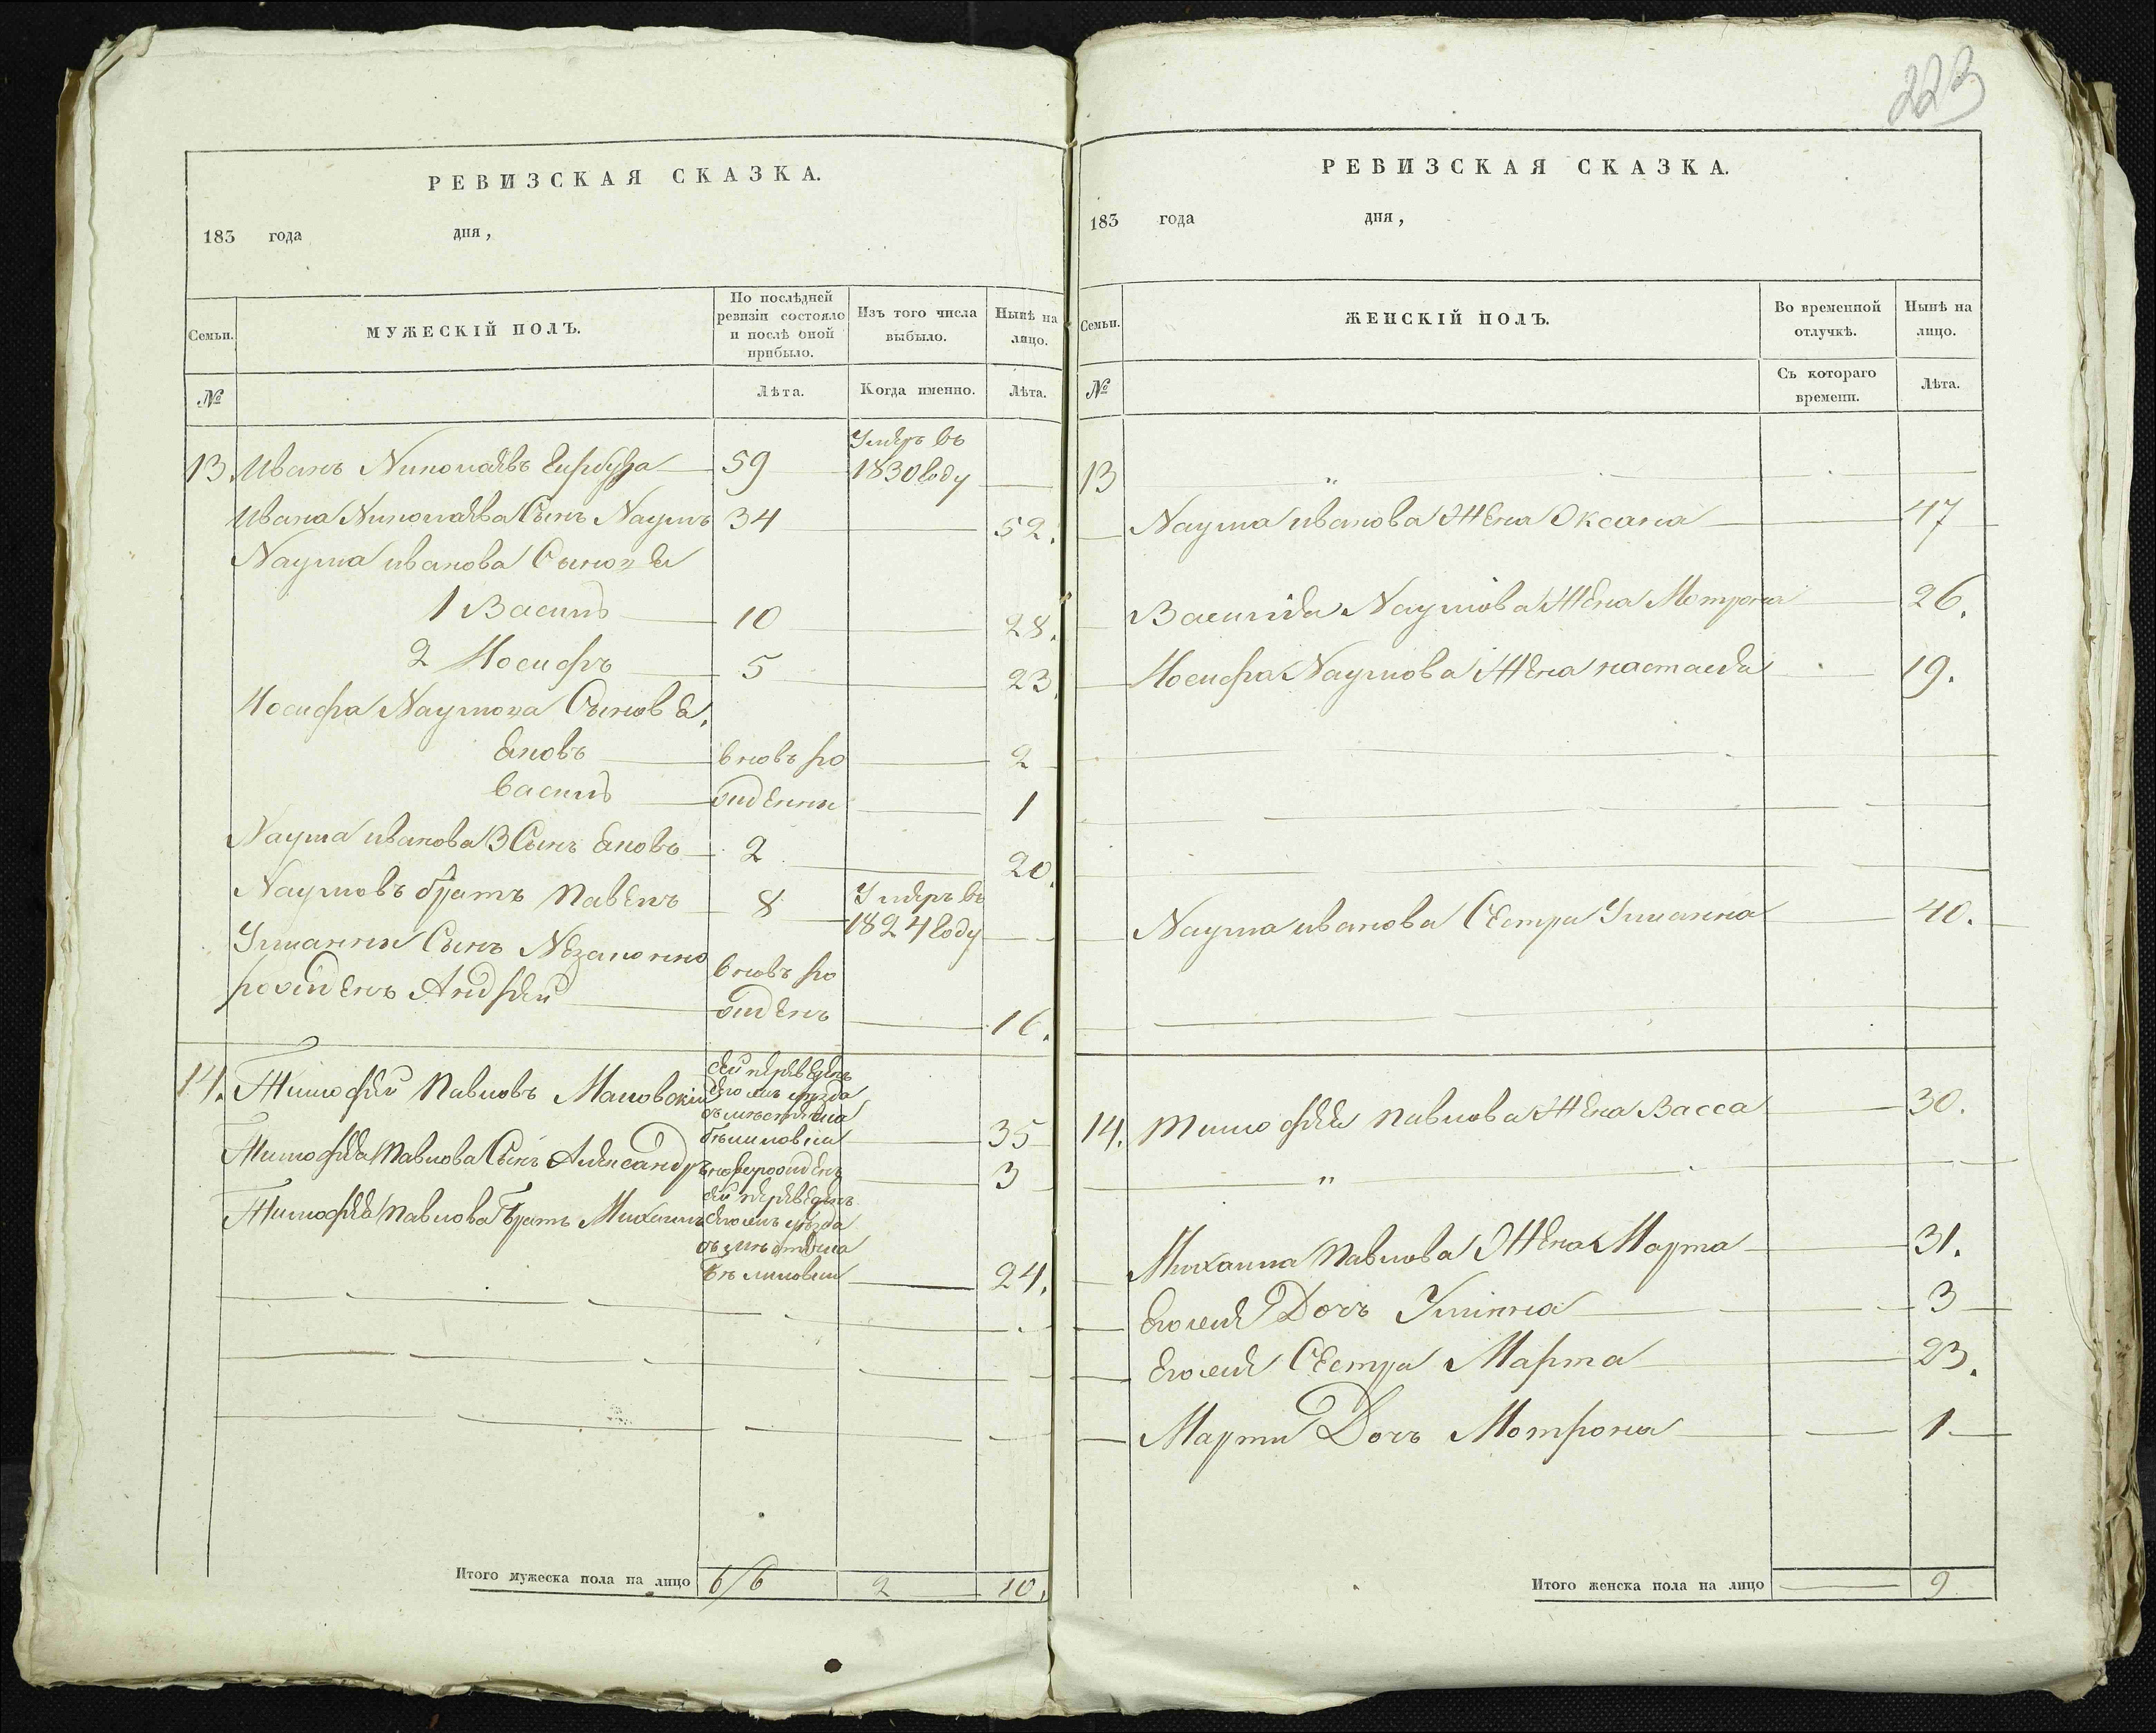 223
РЕВИЗСКАЯ СКАЗКА.
183 года дня,
Семьи.
МУЖЕСКІЙ ПОЛЪ.
По послѣдней
ревизіи состояло
и послѣ оной
прибыло.
Изъ того числа
выбыло.
Нынѣ на
лицо.
№
Лѣта.
Когда именно.
Лѣта.
Умеръ въ
13. Иванъ 59 1830 году
Ивана Сынъ Наумъ 34 52.
Наума иванова Сыновя
1 Василь 10 28.
2 Иосифъ 5 23.
Иосифа Наумова Сыновя,
вновь ро 2
Василь жденни 1
Наума иванова 3 Сынъ 2 20.
Наумовъ братъ Павелъ 8 Умеръ въ
1824 году
Сынъ Незаконно
рожденъ Андрей вновь ро
жденъ 16.
14. Тимофей Павловъ
35
Тимофея Павлова Сынъ Александръ 3
Тимофея Павлова Братъ Михаилъ
24.
Итого мужеска пола на лицо 6/6 2 10.
РЕВИЗСКАЯ СКАЗКА.
183 года дня,
Семьи.
ЖЕНСКІЙ ПОЛЪ.
Во временной
отлучкѣ.
Нынѣ на
лицо.
№
Съ котораго
времени.
Лѣта.
13 "
Наума иванова Жена Оксана 47
Василія Наумова Жена Мотрона 26.
Иосифа Наумова Жена настасея 19.
Наума иванова Сестра 40.
14. Тимофея Павлова Жена Васса 30.
"
Михаила Павлова Жена Марта 31.
Дочь 3
Сестра Марта 23.
Марти Дочь Мотрона 1
Итого женска пола на лицо 9